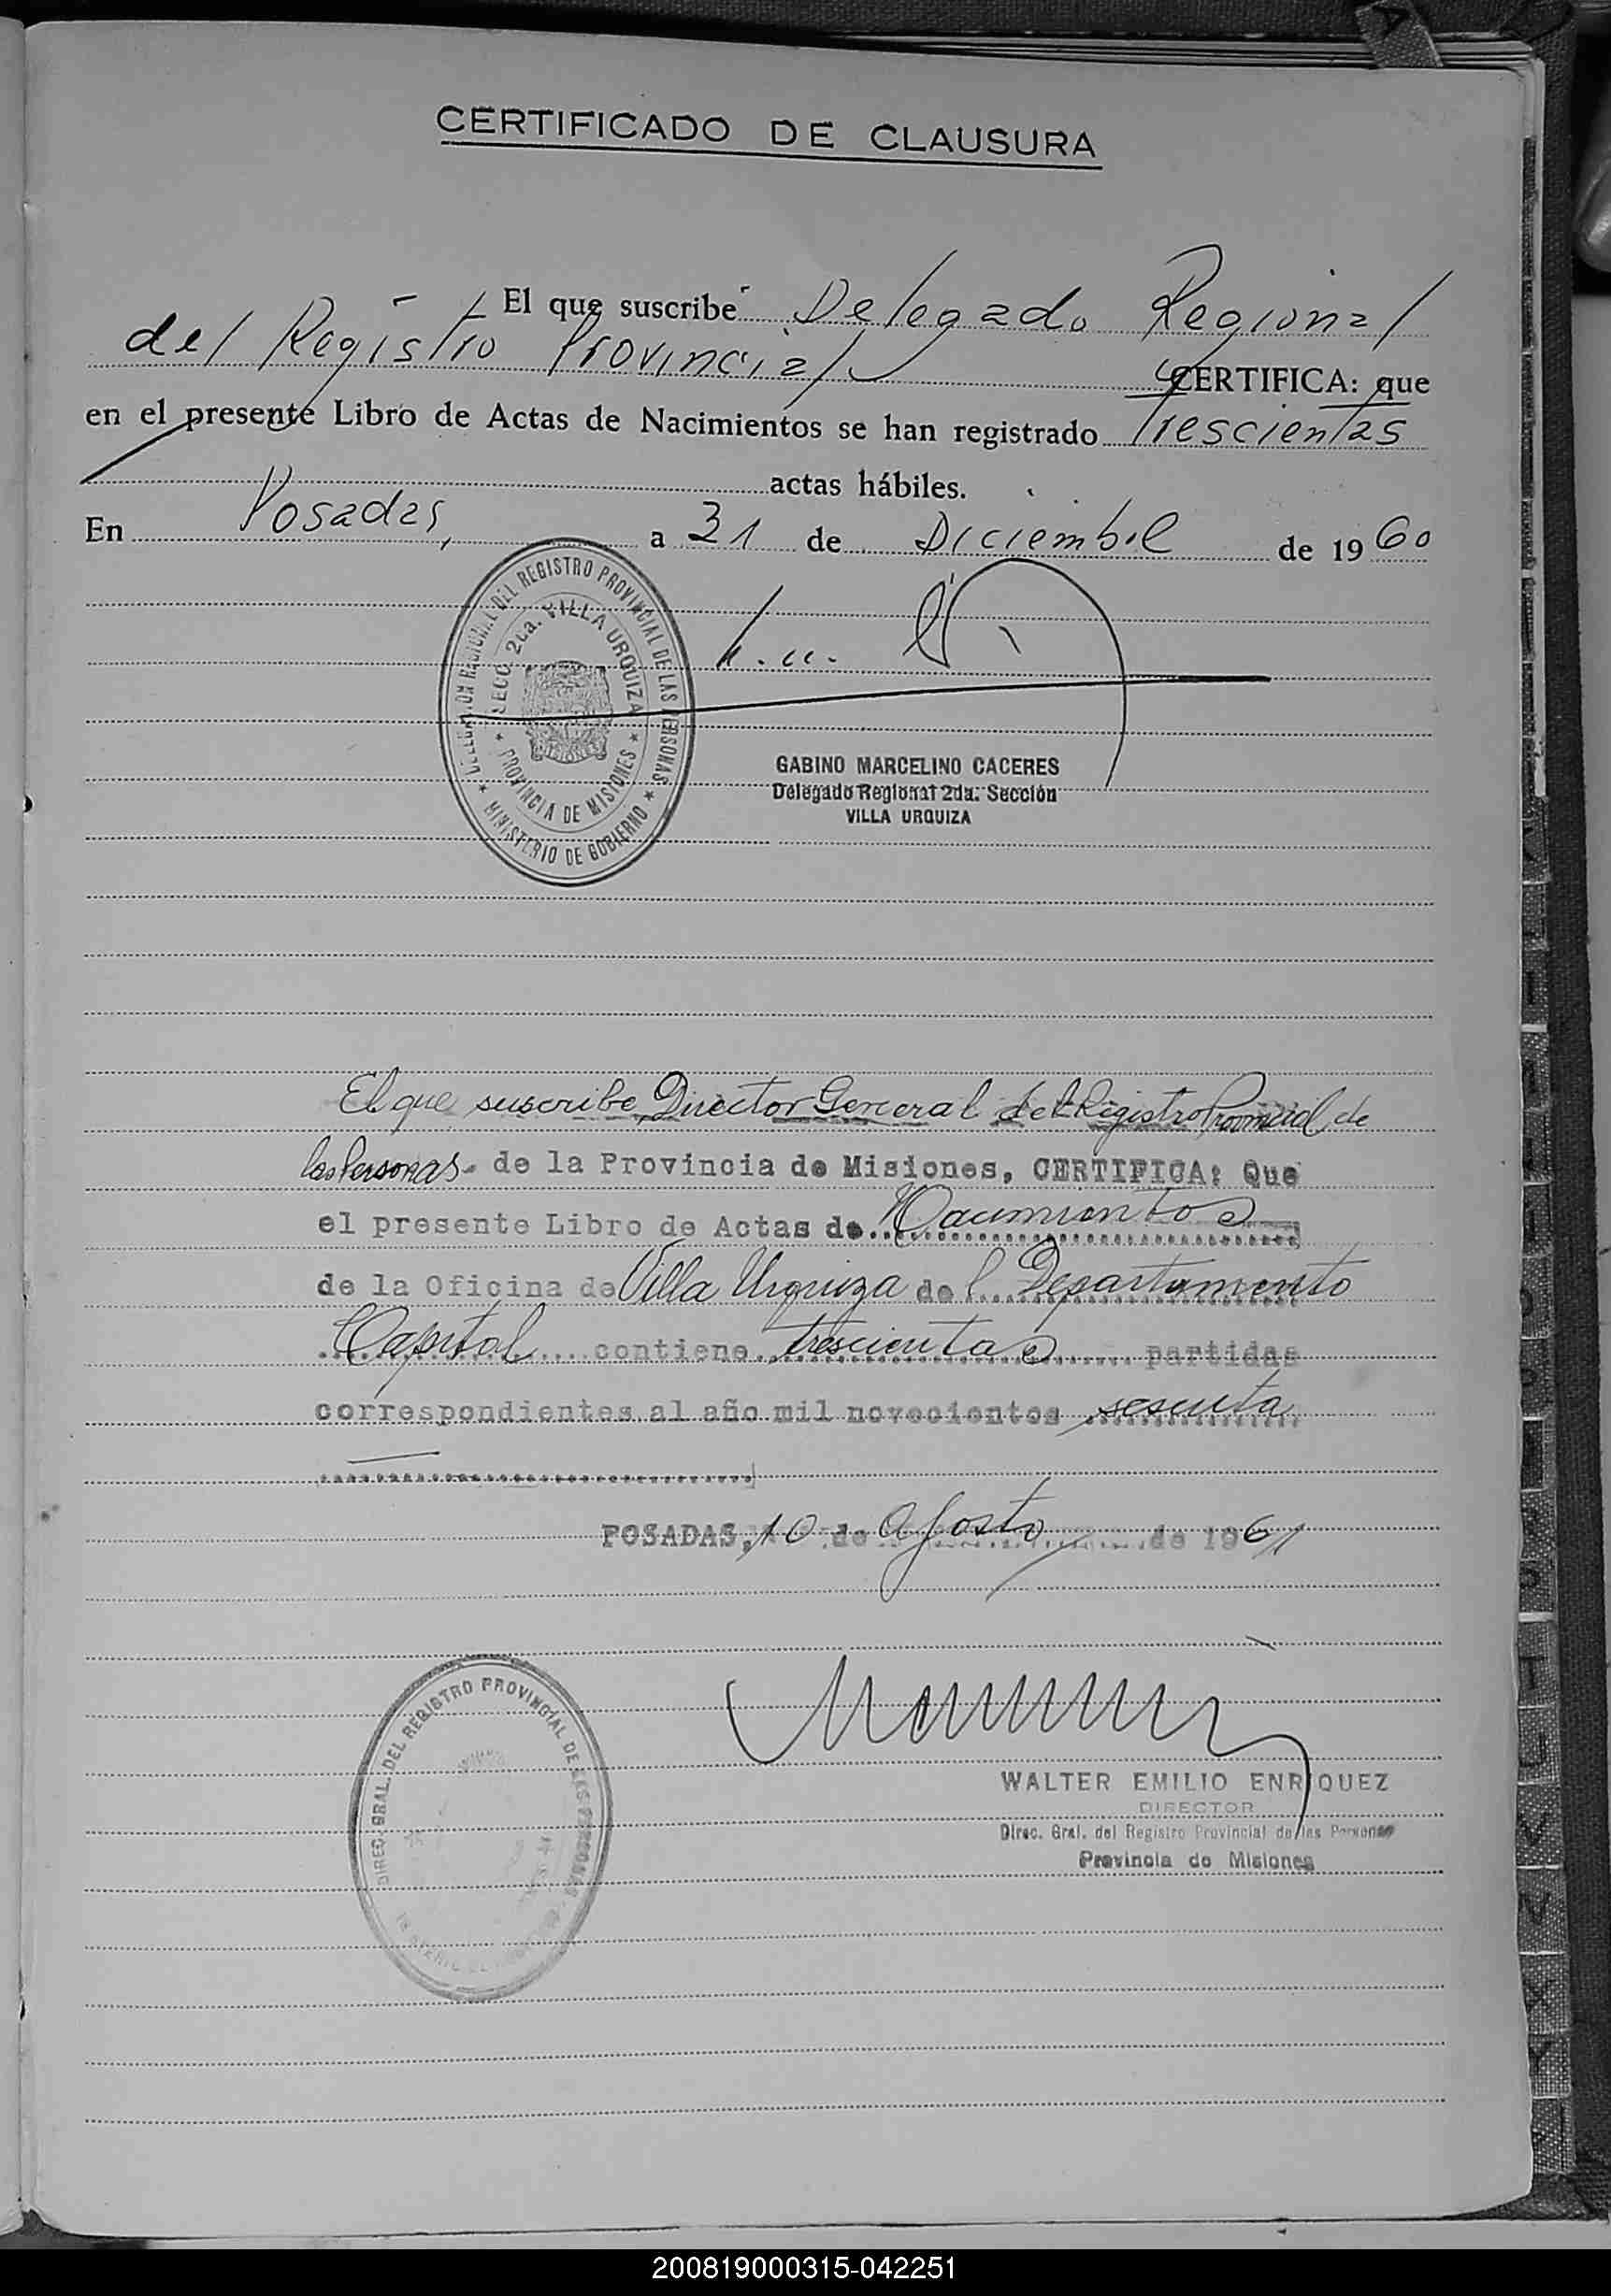 CERTIFICADO DE CLAUSURA
El que suscribe Delegado Regional
del Registro Provincial
CERTIFICA: que
en el presente Libro de Actas de Nacimientos se han registrado Trescientas
actas hábiles.
En Posadas, a 31 de Diciembre de 1960
DELEGACION REGIONAL DEL REGISTRO PROVINCIAL DE LAS PERSONAS
SECC. 2da. VILLA URQUIZA
MISIONES
PROVINCIA DE MISIONES
MINISTERIO DE GOBIERNO
GABINO MARCELINO CACERES
Delegado Regional 2da. Sección
VILLA URQUIZA
El que suscribe, Director General del Registro Provincial de
las Personas de la Provincia de Misiones, CERTIFICA: Que
el presente Libro de Actas de Nacimientos
de la Oficina de Villa Urquiza del Departamento
Capital contiene trescientas partidas
correspondientes al año mil novecientos sesenta
POSADAS, 10 de Agosto de 1961
DIREC. GRAL. DEL REGISTRO PROVINCIAL DE LAS PERSONAS
WALTER EMILIO ENRIQUEZ
DIRECTOR
Direc. Gral. del Registro Provincial de las Personas
Provincia de Misiones
200819000315-042251